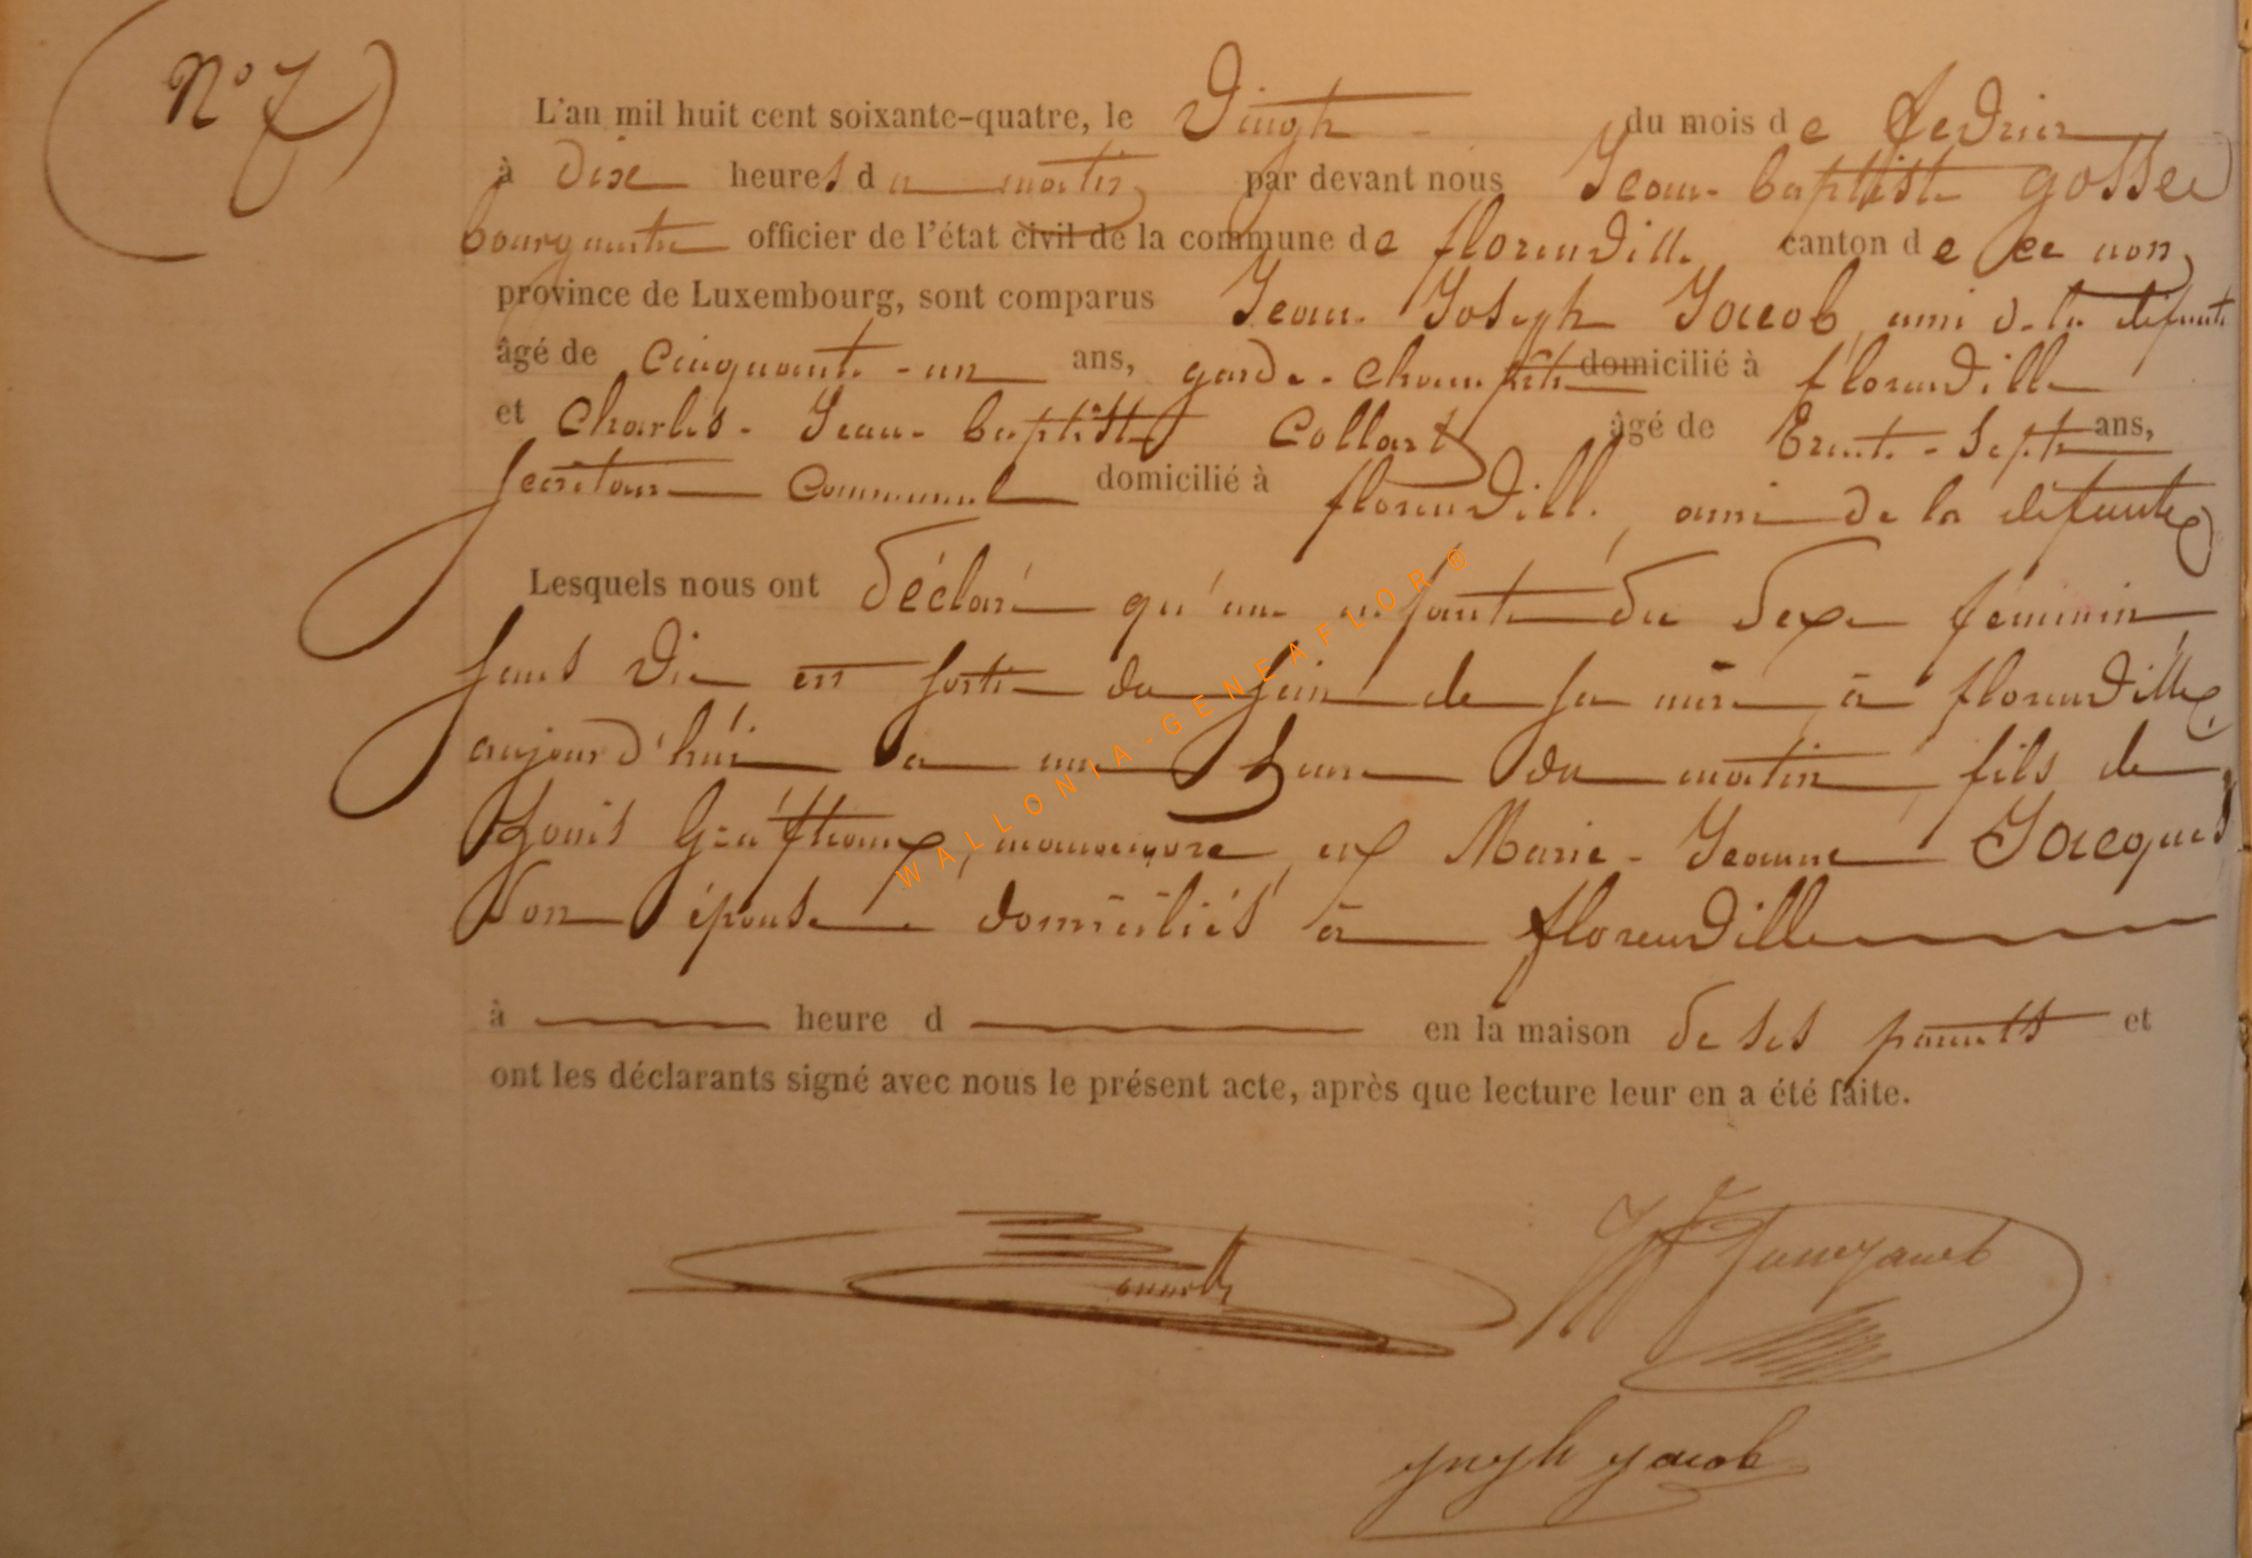 (N° 7)
L'an mil huit cent soixante-quatre, le Vingt du mois de fevrier
à dix heures du matin par devant nous Jean-baptiste gosse
bourgmestre officier de l'état civil de la commune de florenville canton de ce nom,
province de Luxembourg, sont comparus Jean-Joseph Jacob, ami de la défunte
âgé de cinquante-un ans, garde-champêtre domicilié à florenville
et Charles-Jean-baptiste Collart âgé de trente-sept ans,
secrétaire communal domicilié à florenville, ami de la défunte
Lesquels nous ont déclaré qu'une enfante du sexe féminin
sans vie est sortie du sein de sa mère, à florenville,
aujourd'hui à une heure du matin, fils de
Louis manoeuvre, et Marie-Jeanne Jacques
son épouse domiciliés à florenville
à heure d en la maison de ses parents et
ont les déclarants signé avec nous le présent acte, après que lecture leur en a été faite.
WALLONIA-GENEAFLOR®
Jacob